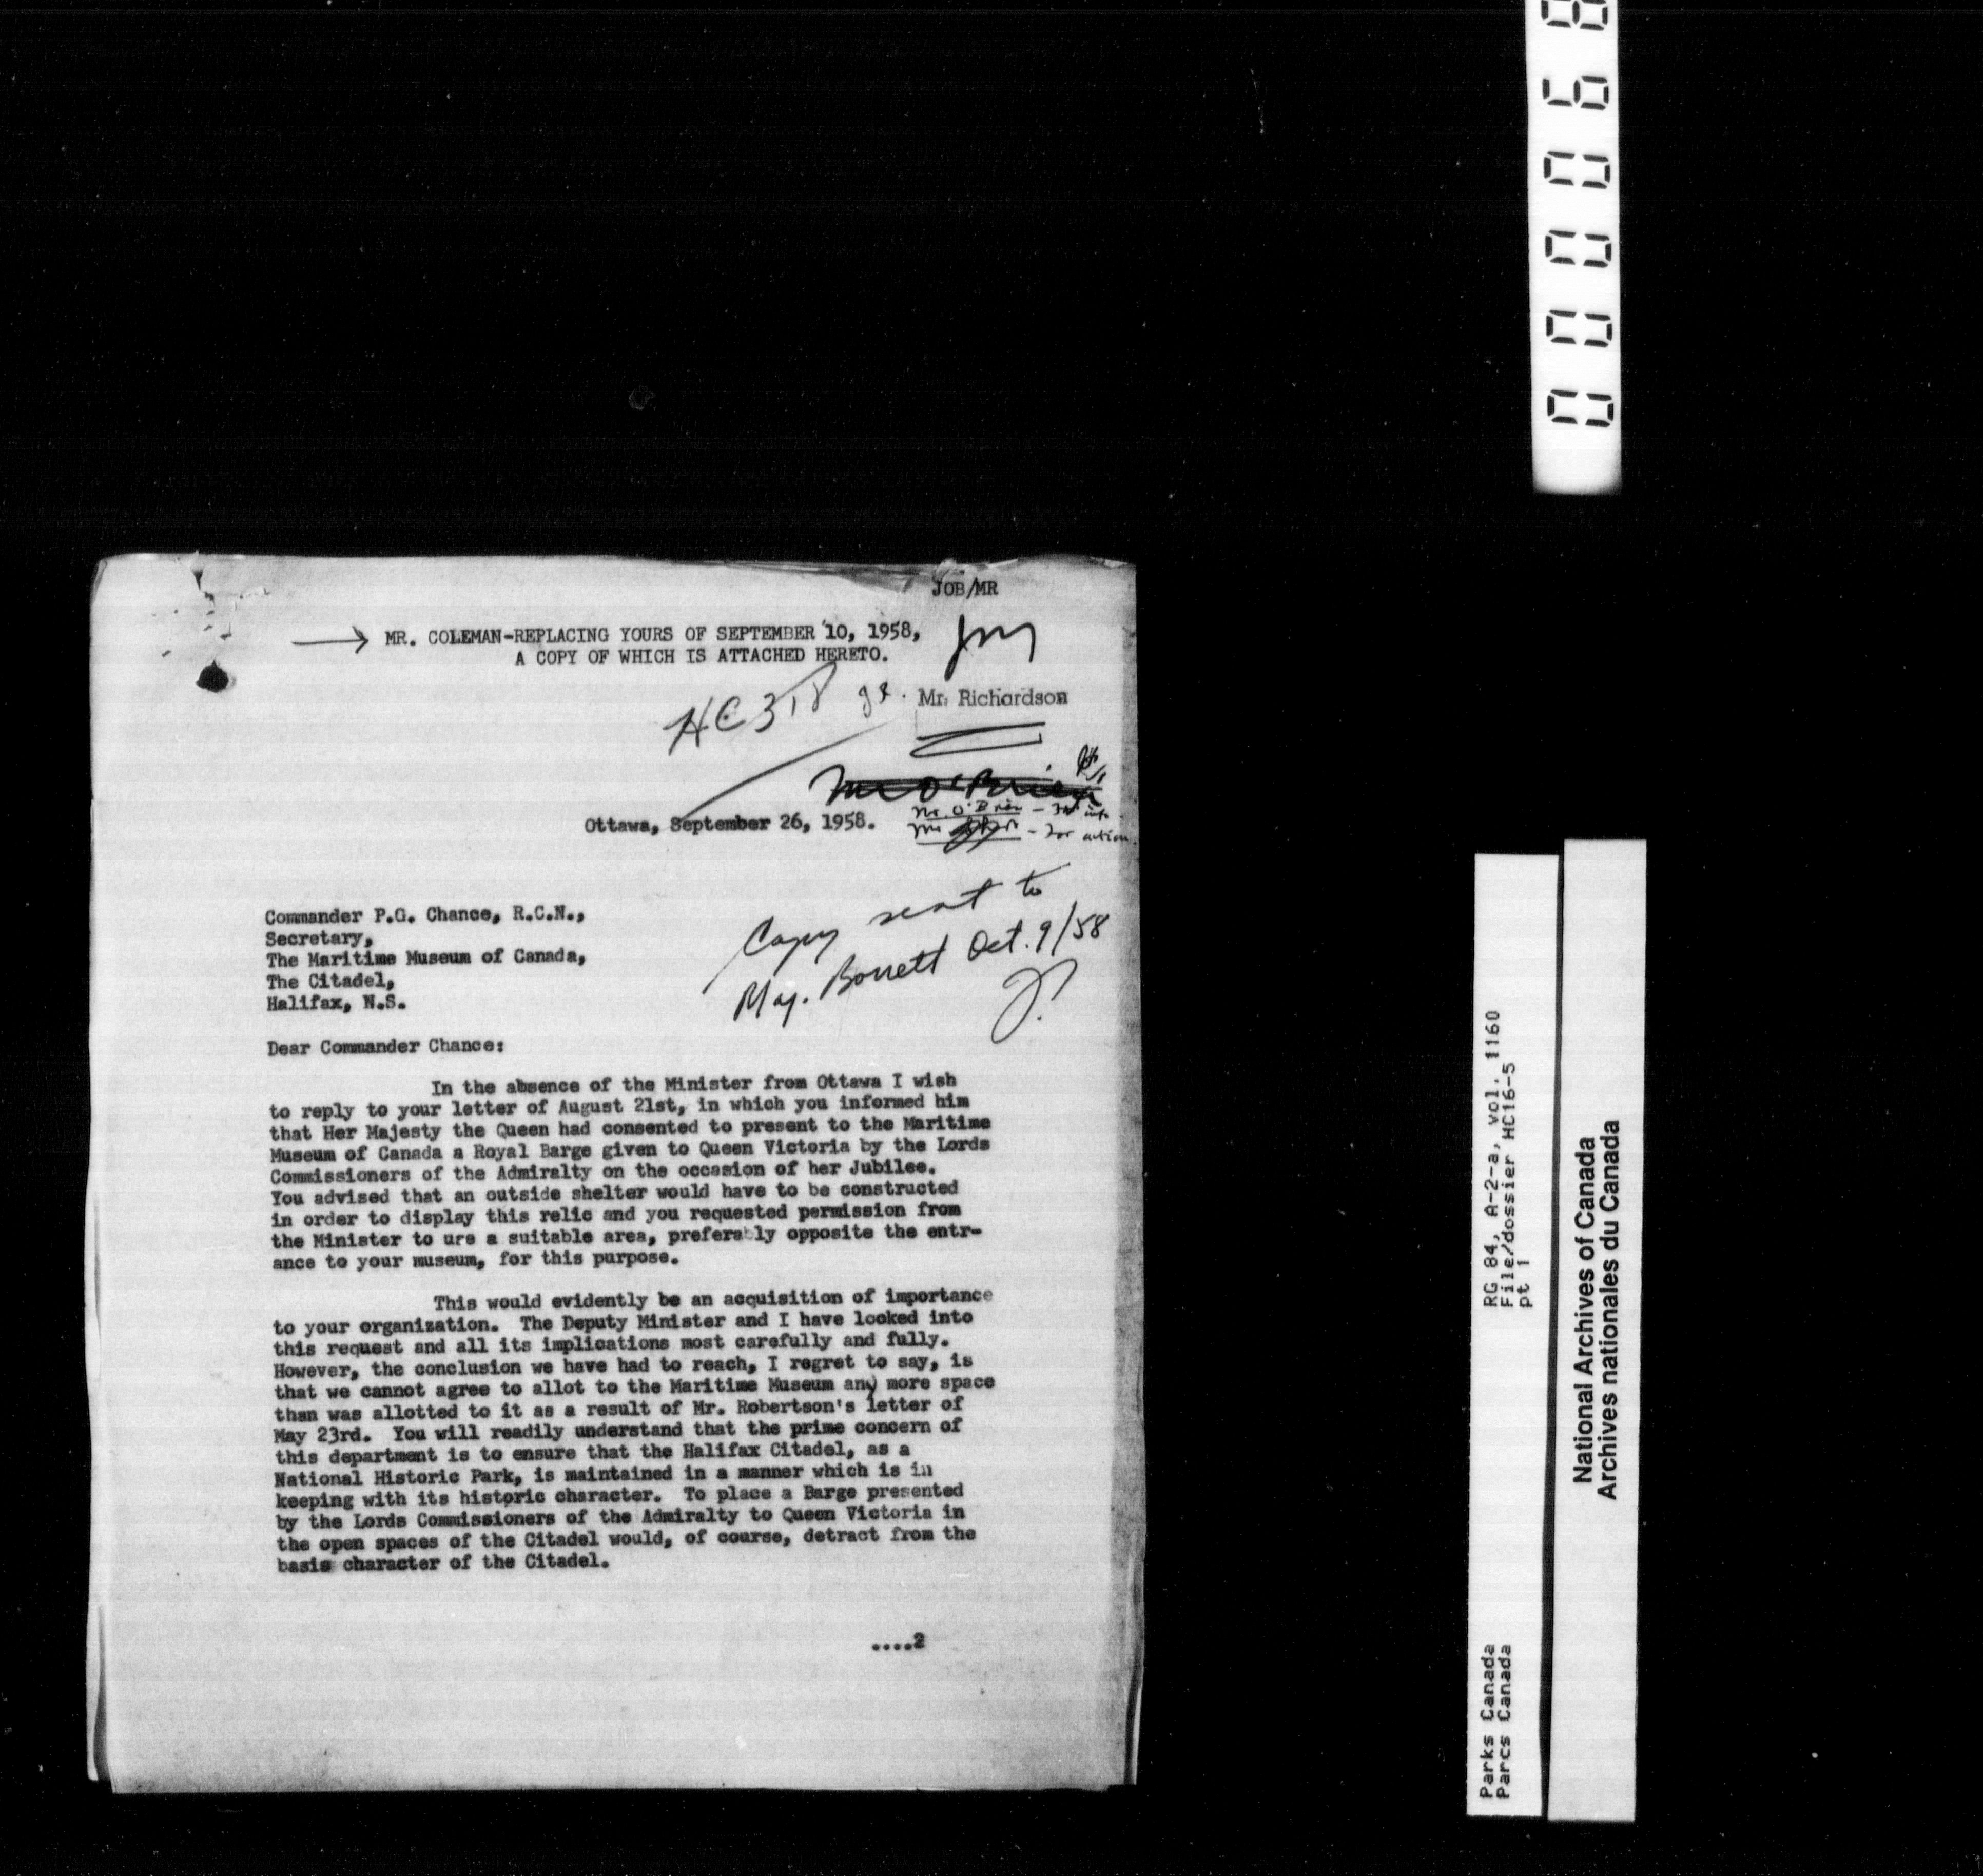 JOB/MR
MR. COLEMAN-REPLACING YOURS OF SEPTEMBER 10, 1958,
A COPY OF WHICH IS ATTACHED HERETO.
Mr. Richardson
Mr O'Brien
Mr. O'Brien - For info.
Mr - For action
Ottawa, September 26, 1958.
Copy sent to
Maj. Borrett Oct. 9/58
Commander P.G. Chance, R.C.N.,
Secretary,
The Maritime Museum of Canada,
The Citadel,
Halifax, N.S.
Dear Commander Chance:
In the absence of the Minister from Ottawa I wish
to reply to your letter of August 21st, in which you informed him
that Her Majesty the Queen had consented to present to the Maritime
Museum of Canada a Royal Barge given to Queen Victoria by the Lords
Commissioners of the Admiralty on the occasion of her Jubilee.
You advised that an outside shelter would have to be constructed
in order to display this relic and you requested permission from
the Minister to ure a suitable area, preferably opposite the entr-
ance to your museum, for this purpose.
This would evidently be an acquisition of importance
to your organization. The Deputy Minister and I have looked into
this request and all its implications most carefully and fully.
However, the conclusion we have had to reach, I regret to say, is
that we cannot agree to allot to the Maritime Museum any more space
than was allotted to it as a result of Mr. Robertson's letter of
May 23rd. You will readily understand that the prime concern of
this department is to ensure that the Halifax Citadel, as a
National Historic Park, is maintained in a manner which is in
keeping with its historic character. To place a Barge presented
by the Lords Commissioners of the Admiralty to Queen Victoria in
the open spaces of the Citadel would, of course, detract from the
basis character of the Citadel.
....2
RG 84, A-2-a, vol. 1160
File/dossier HC16-5
pt 1
Parks Canada
Parcs Canada
National Archives of Canada
Archives nationales du Canada